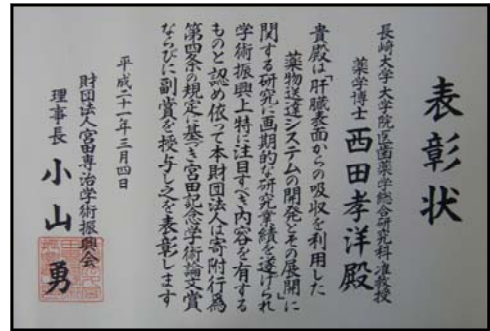 表彰状
長崎大学大学院医歯薬学総合研究科准教授
薬学博士 西田孝洋殿
貴殿は「肝臓表面からの吸収を利用した
薬物送達システムの開発とその展開」に
関する研究に画期的な研究業績を遂げられ
学術振興上特に注目すべき内容を有する
ものと認め依って本財団法人は寄附行為
第四条の規定に基き宮田記念学術論文賞
ならびに副賞を授与し之を表彰します
平成二十一年三月四日
財団法人宮田専治学術振興会
理事長 小山 勇